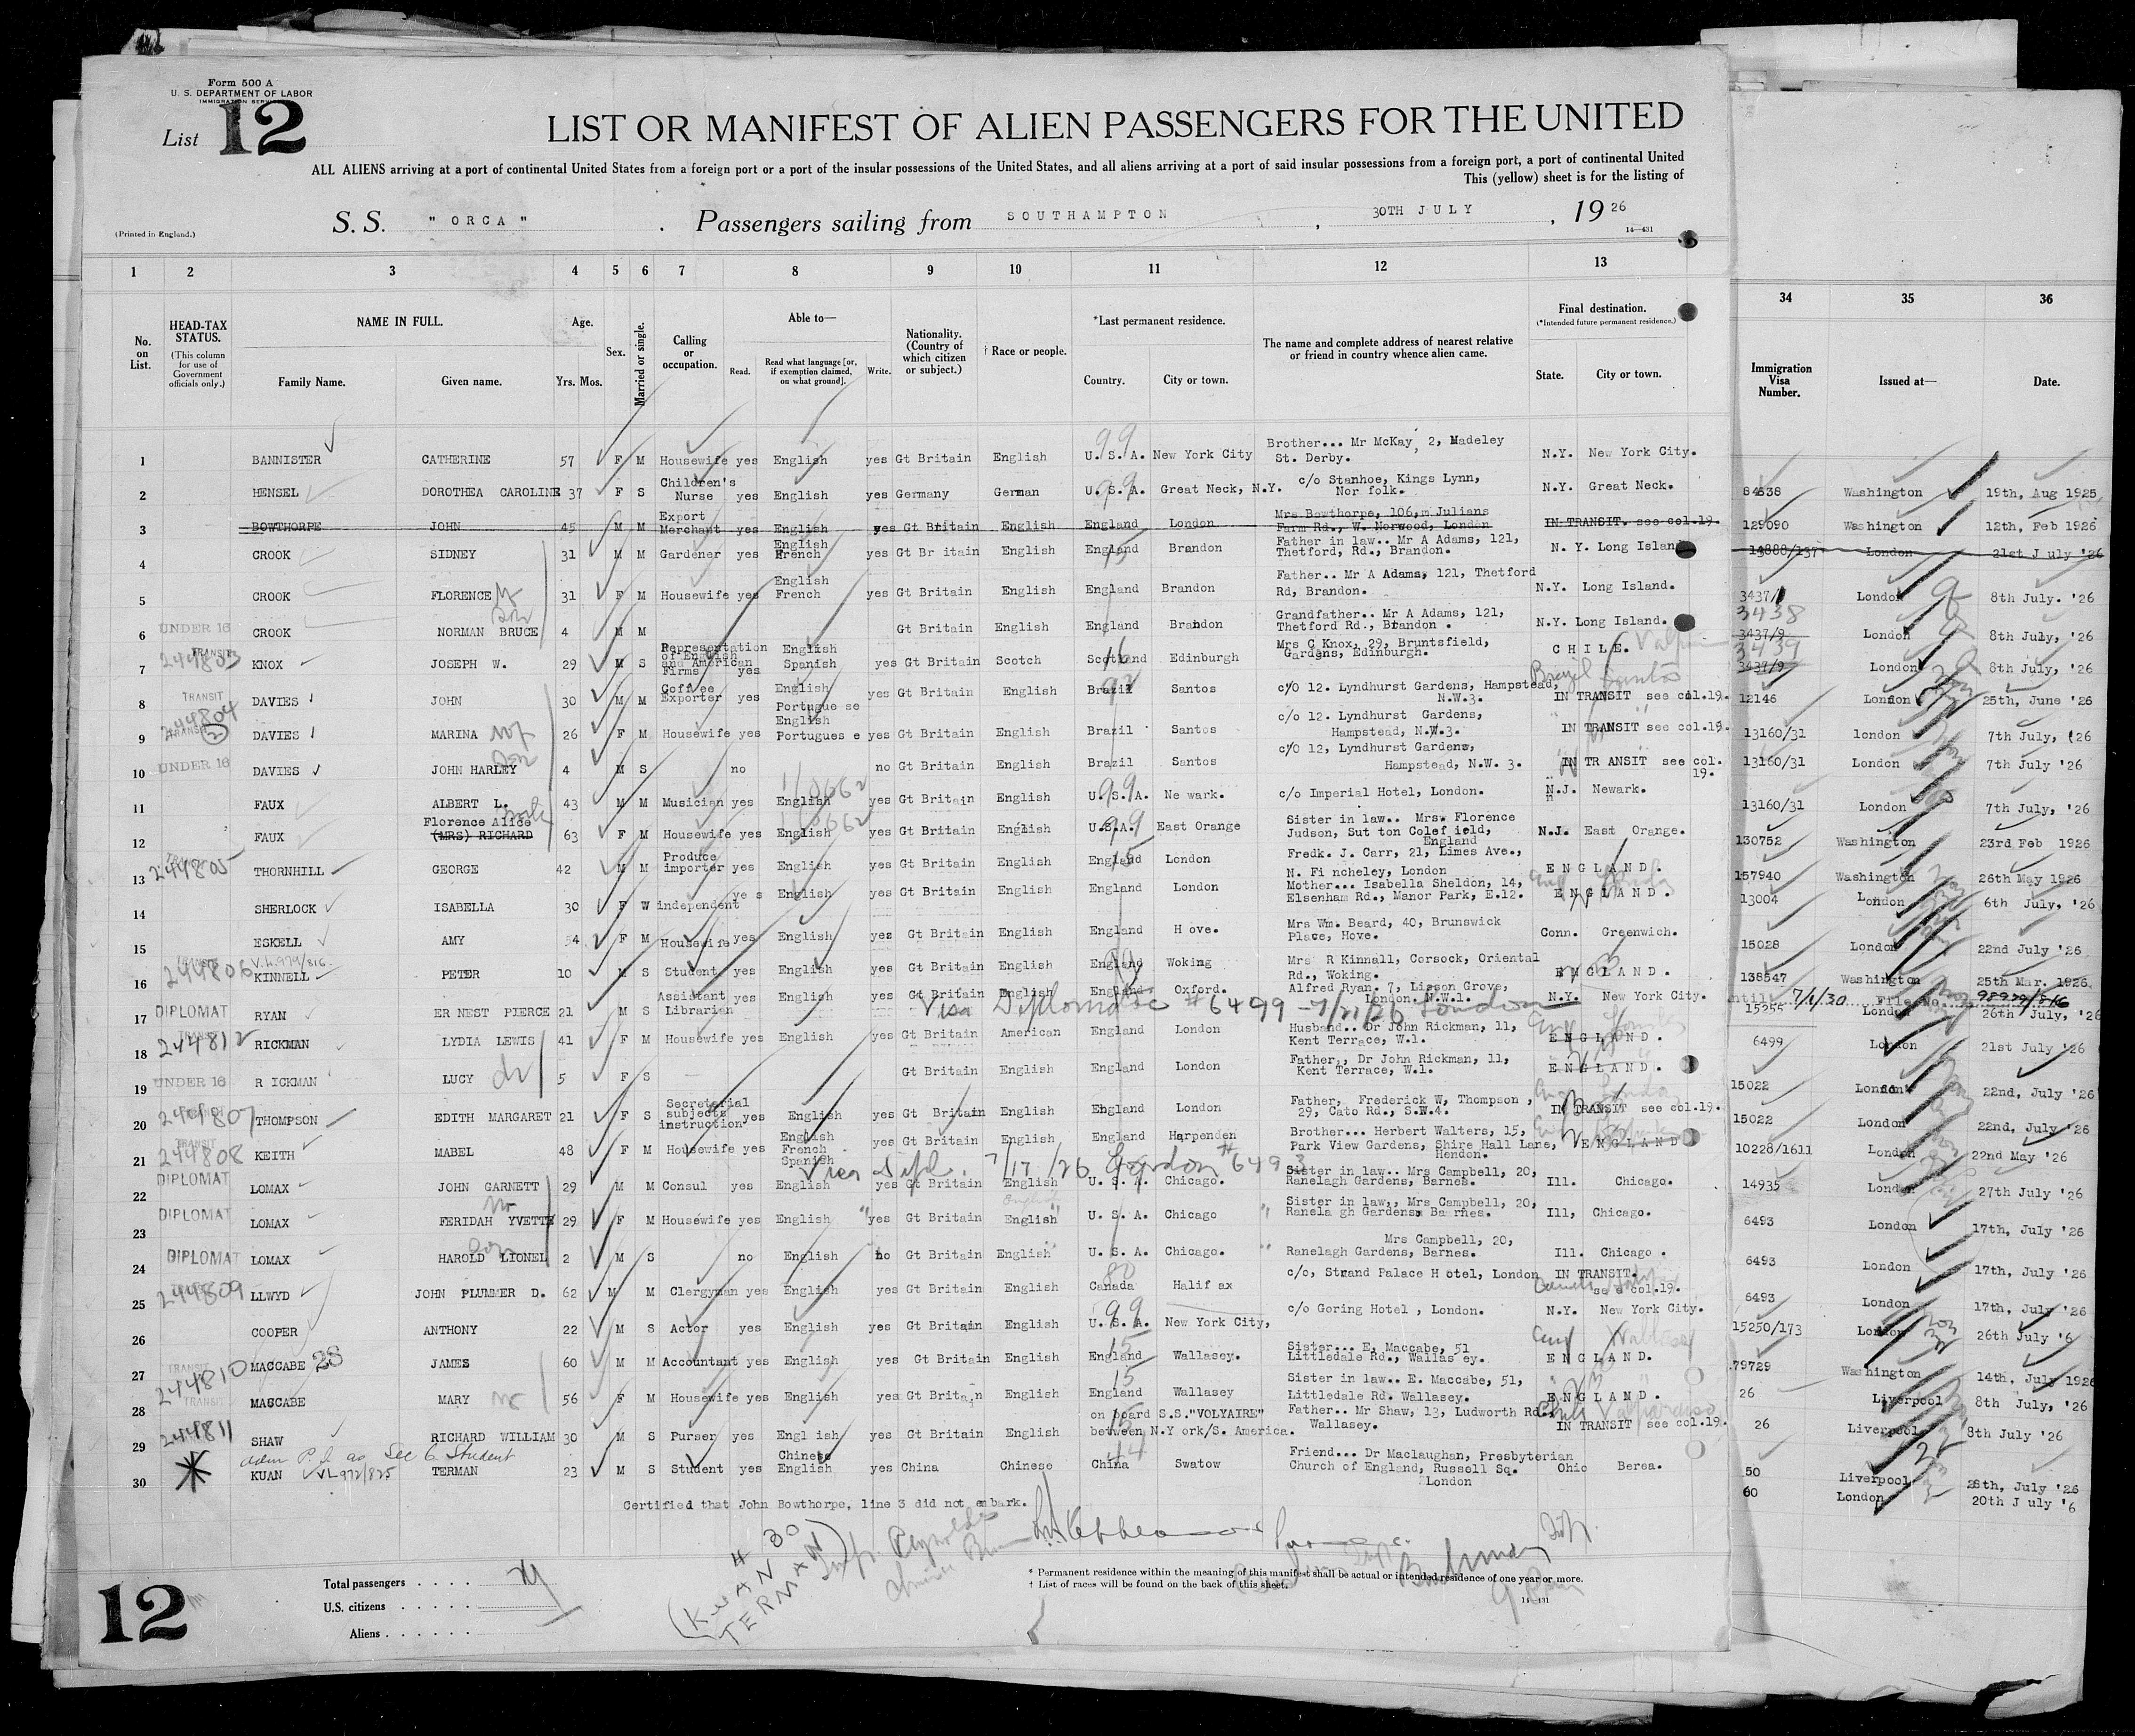 Form 500 A
U. S. DEPARTMENT OF LABOR
IMMIGRATION SERVICE
List 12
LIST OR MANIFEST OF ALIEN PASSENGERS FOR THE UNITED
ALL ALIENS arriving at a port of continental United States from a foreign port or a port of the insular possessions of the United States, and all aliens arriving at a port of said insular possessions from a foreign port, a port of continental United
This (yellow) sheet is for the listing of
S. S. " ORCA " . Passengers sailing from SOUTHAMPTON , 30TH JULY , 19 26
(Printed in England.)
14—431
1 2 3 4 5 6 7 8 9 10 11 12 13 34 35 36
No. on List.
HEAD-TAX STATUS.
(This column for use of Government officials only.)
NAME IN FULL.
Family Name. Given name.
Age.
Yrs. Mos.
Sex.
Married or single.
Calling or occupation.
Able to—
Read. Read what language [or, if exemption claimed, on what ground]. Write.
Nationality. (Country of which citizen or subject.)
† Race or people.
*Last permanent residence.
Country. City or town.
The name and complete address of nearest relative or friend in country whence alien came.
Final destination.
(*Intended future permanent residence.)
State. City or town.
Immigration Visa Number.
Issued at—
Date.
1 BANNISTER CATHERINE 57 F M Housewife yes English yes Gt Britain English U.S.A. New York City Brother... Mr McKay, 2, Madeley St. Derby. N.Y. New York City.
2 HENSEL DOROTHEA CAROLINE 37 F S Children's Nurse yes English yes Germany German U.S.A. Great Neck, N.Y. c/o Stanhoe, Kings Lynn, Nor folk. N.Y. Great Neck. 84838 Washington 19th, Aug 1925
3 BOWTHORPE JOHN 45 M M Export Merchant yes English yes Gt Britain English England London Mrs Bowthorpe, 106, Julians Farm Rd., W. Norwood, London IN TRANSIT. see col.19. 129090 Washington 12th, Feb 1926
4 CROOK SIDNEY 31 M M Gardener yes English French yes Gt Br itain English England Brandon Father in law.. Mr A Adams, 121, Thetford, Rd., Brandon. N. Y. Long Island 14888/137 London 21st J uly '26
5 CROOK FLORENCE 31 F M Housewife yes English French yes Gt Britain English England Brandon Father.. Mr A Adams, 121, Thetford Rd, Brandon. N.Y. Long Island. 3437/ London 8th July. '26
6 UNDER 16 CROOK NORMAN BRUCE 4 M M Gt Britain English England Brandon Grandfather.. Mr A Adams, 121, Thetford Rd., Brandon . N.Y. Long Island. 3438 3437/9 London 8th July, '26
7 TRANSIT 244803 KNOX JOSEPH W. 29 M S Representation of English and American Firms yes English Spanish yes Gt Britain Scotch Scotland Edinburgh Mrs C Knox, 29, Bruntsfield, Gardens, Edinburgh. CHILE. 3439 3437/9 London 8th July, '26
8 TRANSIT 244804 DAVIES JOHN 30 M M Coffee Exporter yes English Portugue se yes Gt Britain English Brazil Santos c/O 12. Lyndhurst Gardens, Hampstead, N.W.3. Brazil Santos IN TRANSIT see col.19. 12146 London 25th, June '26
9 TRANSIT DAVIES MARINA wf 26 F M Housewife yes English Portugues e yes Gt Britain English Brazil Santos c/o 12. Lyndhurst Gardens, Hampstead, N.W.3. IN TRANSIT see col.19. 13160/31 london 7th July, '26
10 UNDER 16 DAVIES JOHN HARLEY son 4 M S no no Gt Britain English Brazil Santos c/O 12, Lyndhurst Gardens, Hampstead, N.W. 3. IN TR ANSIT see col. 19. 13160/31 London 7th July '26
11 FAUX ALBERT L. 43 M M Musician yes English yes Gt Britain English U.S.A. Ne wark. c/o Imperial Hotel, London. N.J. Newark. 13160/31 London 7th July, '26
12 FAUX Florence Alice (MRS) RICHARD 63 F M Housewife yes English yes Gt Britain English U.S.A. East Orange Sister in law.. Mrs. Florence Judson, Sut ton Colef ield, England N.J. East Orange. 130752 Washington 23rd Feb 1926
13 244805 THORNHILL GEORGE 42 M M Produce importer yes English yes Gt Britain English England London Fredk. J. Carr, 21, Limes Ave., N. Fi ncheley, London ENGLAND. 157940 Washington 26th May 1926
14 SHERLOCK ISABELLA 30 F W independent ye s English yes Gt Britain English England London Mother... Isabella Sheldon, 14, Elsenham Rd., Manor Park, E.12. ENGLAND. 13004 London 6th July, '26
15 ESKELL AMY 54 F M Housewife yes English yes Gt Britain English England H ove. Mrs Wm. Beard, 40, Brunswick Place, Hove. Conn. Greenwich. 15028 London 22nd July '26
16 244806 V.L.979/816 KINNELL PETER 10 M S Student yes English yes Gt Britain English England Woking Mrs R Kinnall, Corsock, Oriental Rd., Woking. ENGLAND. 138547 Washington 25th Mar. 1926
17 DIPLOMAT RYAN ER NEST PIERCE 21 M S Assistant Librarian yes English yes Gt Britain English England Oxford. Alfred Ryan. 7, Lisson Grove, London. N.W.1. N.Y. New York City. until 7/1/30 File No. 98979/816 15255 London 26th July, '26
Visa Diplomatic #6499 - 7/21/26 London
18 TRANSIT 244812 RICKMAN LYDIA LEWIS 41 F M Housewife yes English yes Gt Britain American England London Husband.. Dr John Rickman, 11, Kent Terrace, W.1. ENGLAND. 6499 London 21st July '26
19 UNDER 16 R ICKMAN LUCY 5 F S Gt Britain English England London Father., Dr John Rickman, 11, Kent Terrace, W.1. ENGLAND. 15022 London 22nd, July '26
20 244807 THOMPSON EDITH MARGARET 21 F S Secreterial subjects instruction yes English yes Gt Britain English England London Father, Frederick W, Thompson , 29, Cato Rd., S.W.4. IN TRANSIT see col.19. 15022 London 22nd, July '26
21 TRANSIT 244808 KEITH MABEL 48 F M Housewife yes English French Spanish yes Gt Britain English England Harpenden Brother... Herbert Walters, 15, Park View Gardens, Shire Hall Lane, Hendon. ENGLAND 10228/1611 London 22nd May '26
Visa Dipl. 7/17/26 London #6493
22 DIPLOMAT LOMAX JOHN GARNETT 29 M M Consul yes English yes Gt Britain English U. S. A. Chicago. Sister in law.. Mrs Campbell, 20, Ranelagh Gardens, Barnes. Ill. Chicago. 14935 London 27th July '26
23 DIPLOMAT LOMAX FERIDAH YVETTE 29 F M Housewife yes English yes Gt Britain English U. S. A. Chicago Sister in law,, Mrs Campbell, 20, Ranela gh Gardens, Ba rnes. Ill, Chicago. 6493 London 17th, July '26
24 DIPLOMAT LOMAX HAROLD LIONEL 2 M S no English no Gt Britain English U. S. A. Chicago. Mrs Campbell, 20, Ranelagh Gardens, Barnes. Ill. Chicago . 6493 London 17th, July '26
25 244809 LLWYD JOHN PLUMMER D. 62 M M Clergyman yes English yes Gt Britain English Canada Halif ax c/o, Strand Palace H otel, London IN TRANSIT. see col.19. 6493 London 17th, July '26
26 COOPER ANTHONY 22 M S Actor yes English yes Gt Britain English U. S. A. New York City, c/o Goring Hotel , London. N.Y. New York City. 15250/173 London 26th July '6
27 TRANSIT 244810 MACCABE 28 JAMES 60 M M Accountant yes English yes Gt Britain English England Wallasey. Sister... E. Maccabe, 51 Littledale Rd., Wallas ey. ENGLAND. 79729 Washington 14th, July 1926
28 TRANSIT MACCABE MARY 56 F M Housewife yes English yes Gt Britain English England Wallasey Sister in law.. E. Maccabe, 51, Littledale Rd. Wallasey. ENGLAND. 26 Liverpool 8th July, '26
29 244811 SHAW RICHARD WILLIAM 30 M S Purser yes Engl ish yes Gt Britain English on board S.S."VOLYAIRE" between N.Y ork/S. America. Father.. Mr Shaw, 13, Ludworth Rd. Wallasey. Chile Valparaiso IN TRANSIT see col.19. 26 Liverpool 8th July '26
adm P.I. as Sec 6 Student
30 KUAN VL 972/825 TERMAN 23 M S Student yes Chinese English yes China Chinese China Swatow Friend... Dr Maclaughan, Presbyterian Church of England, Russell Sq. London Ohio Berea. 50 Liverpool 28th, July '26
60 London 20th J uly '6
Certified that John Bowthorpe, line 3 did not embark.
(KWAN #30 TERMAN)
12
Total passengers . . . .
U.S. citizens . . . . .
Aliens . . . . . .
* Permanent residence within the meaning of this manifest shall be actual or intended residence of one year or more.
† List of races will be found on the back of this sheet.
14—431